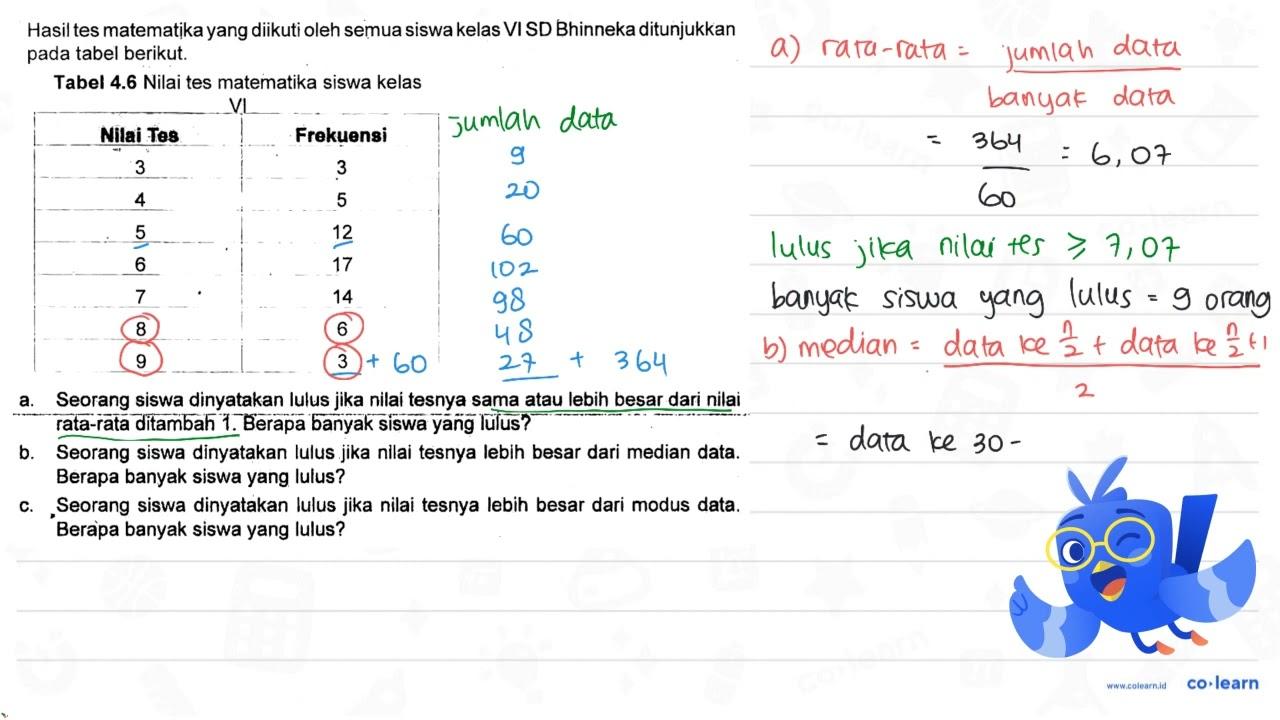 Hasil tes matematika yang diikuti oleh semua siswa kelas VI SD Bhinneka ditunjukkan
pada tabel berikut.
Tabel 4.6 Nilai tes matematika siswa kelas
VI
Nilai Tes Frekuensi jumlah data
3 3 9
4 5 20
5 12 60
6 17 102
7 14 98
8 6 48
9 3 + 60 27 + 364
a. Seorang siswa dinyatakan lulus jika nilai tesnya sama atau lebih besar dari nilai
rata-rata ditambah 1. Berapa banyak siswa yang lulus?
b. Seorang siswa dinyatakan lulus jika nilai tesnya lebih besar dari median data.
Berapa banyak siswa yang lulus?
c. Seorang siswa dinyatakan lulus jika nilai tesnya lebih besar dari modus data.
Berapa banyak siswa yang lulus?
a) rata-rata = jumlah data
banyak data
= 364 = 6,07
60
lulus jika nilai tes ≥ 7,07
banyak siswa yang lulus = 9 orang
b) median = data ke n/2 + data ke n/2 +1
2
= data ke 30 -
www.colearn.id co·learn